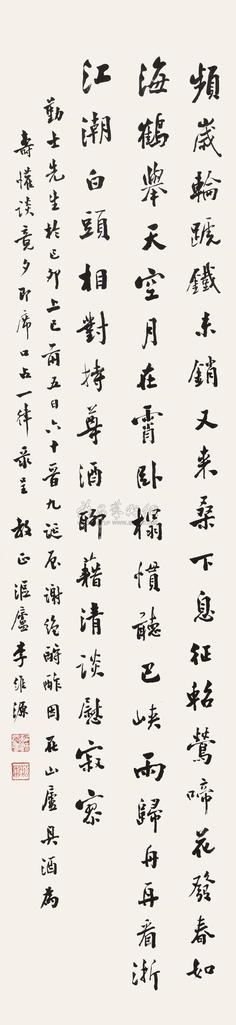 頻歲輪蹏鐵未銷又来桑下息征軺鶯啼花發春如
海鶴舉天空月在霄卧榻慣聽巴峽雨歸舟再看浙
江潮白頭相對持尊酒聊藉清談慰寂寥
勤士先生於己卯上巳前五日六十晋九誕辰謝絕酬酢因在山廬具酒為
壽懽談竟夕即席口占一律录呈教正 廬李維源